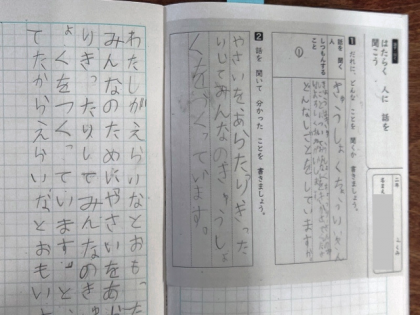 はたらく 人に 話を
聞こう
二年
名まえ
1 だれに、どんな ことを 聞くか 書きましょう。
話を 聞く
人
しつもんする
こと
①
どんなしごとをしていますか
2 話を 聞いて 分かった ことを 書きましょう。
やさいを、あらったりきった
りしてみんなのきゅうしょ
くをつくっています。
わたしがえらいなとおもった
みんなのためにやさいをあ
りきったりしてみんなのき
ょくをつくっています。と、
てたからえらいなとおもい